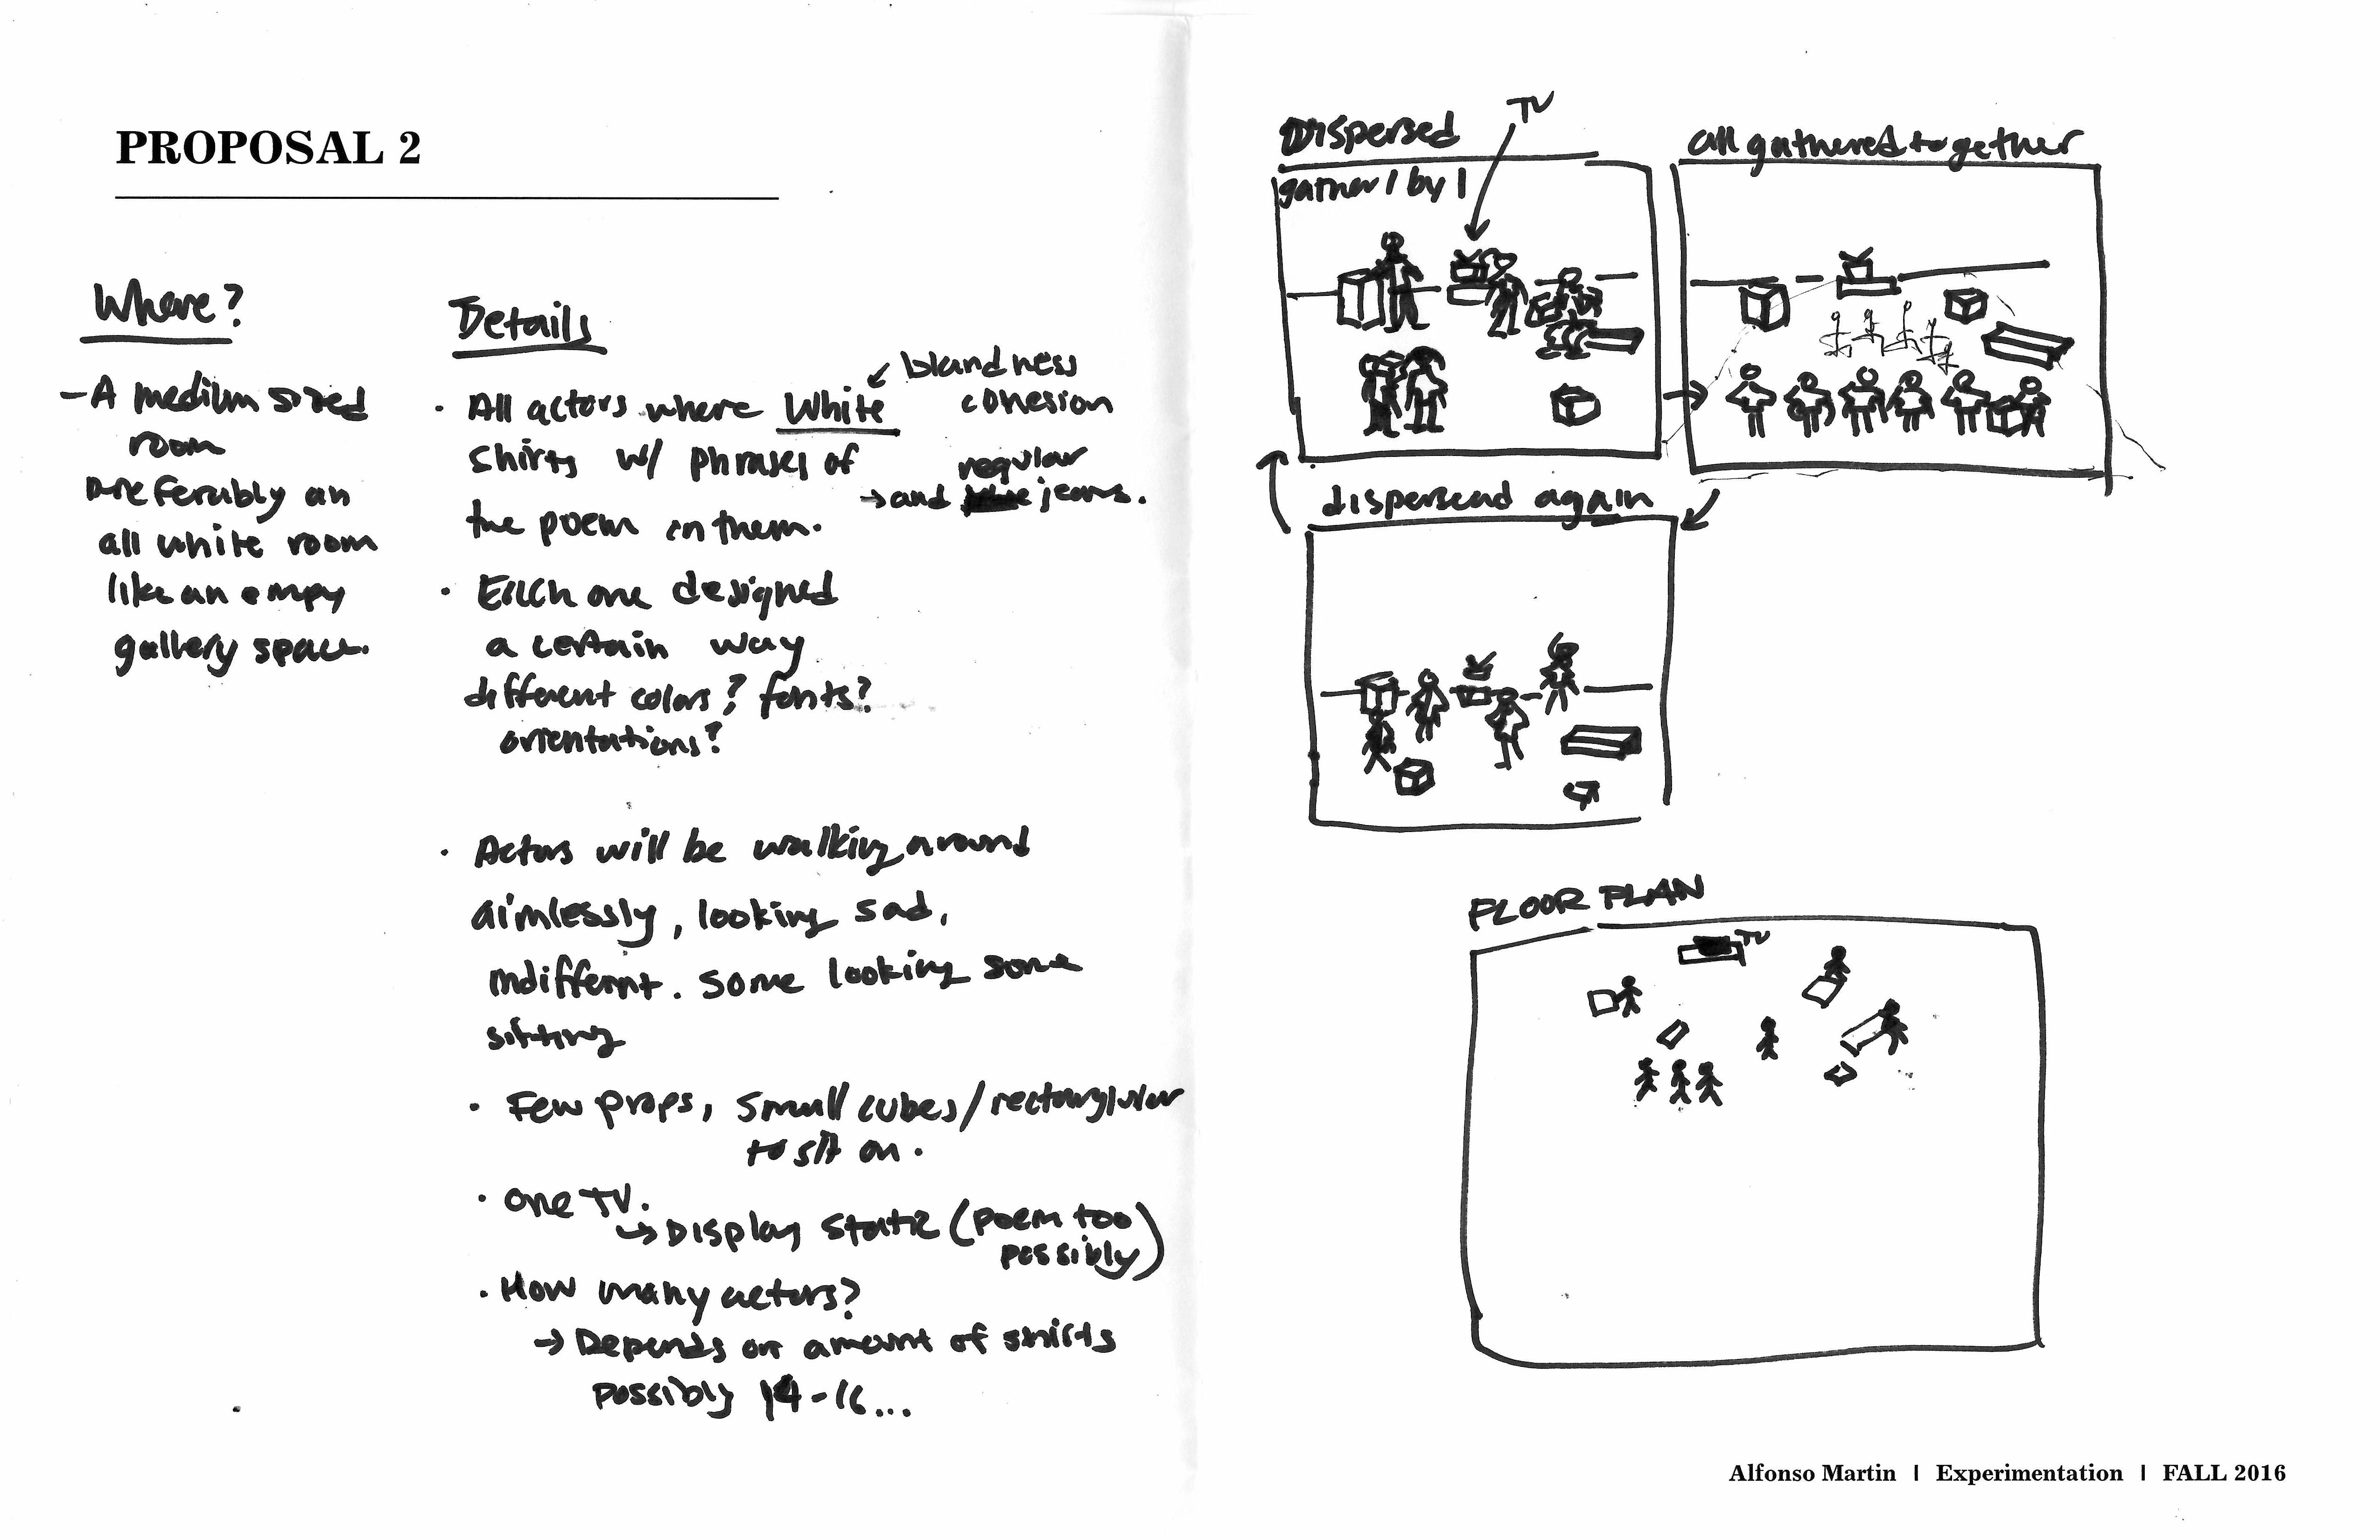 PROPOSAL 2
Where?
- A medium sized
room
preferably an
all white room
like an empy
gallery space.
Details
· All actors where White
shirts w/ phrases of
the poem on them.
↙ blandness
cohesion
regular
→ and jeans.
· Each one designed
a certain way
different colors? fonts?
orientations?
· Actors will be walking around
aimlessly, looking sad,
indiffernt. some looking some
sitting
· Few props, small cubes/rectanglular
to sit on.
· One TV.
↳ Display static (poem too
possibly)
· How many actors?
→ Depends on amount of shirts
possibly 14-16...
Dispersed
TV
gather 1 by 1
all gathered together
dispersead again
FLOOR PLAN
TV
Alfonso Martin | Experimentation | FALL 2016